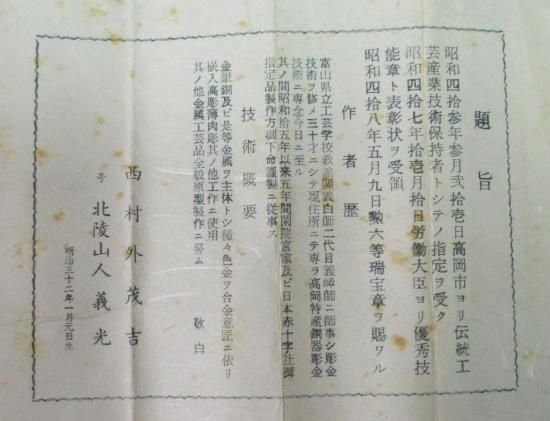 題旨
昭和四拾参年参月弐拾壱日高岡市ヨリ伝統工
芸産業技術保持者トシテノ指定ヲ受ク
昭和四拾七年拾壱月拾日労働大臣ヨリ優秀技
能章ト表彰状ヲ受領
昭和四拾八年五月九日勲六等瑞宝章ヲ賜ワル
作者歴
富山県立工芸学校教諭 義白師二代目義峰師ニ師事シ彫金
技術ヲ修メ三十才ニシテ現住所ニテ専ラ高岡特産銅器彫金
技術ニ専念今日ニ至ル
其ノ間昭和拾五年以来五年間閑院宮家及ビ日本赤十字社御
指定品製作方御下命謹製ニ従事ス
技術概要
金銀銅及ビ是等金属ヲ主体トシ種々色金ヲ合金意匠ニ依リ
嵌入高彫薄肉彫其ノ他工作ニ使用
其ノ他金属工芸品全般原型製作ニ努ム
敬白
西村外茂吉
号 北陵山人義光
明治三十二年一月元日生